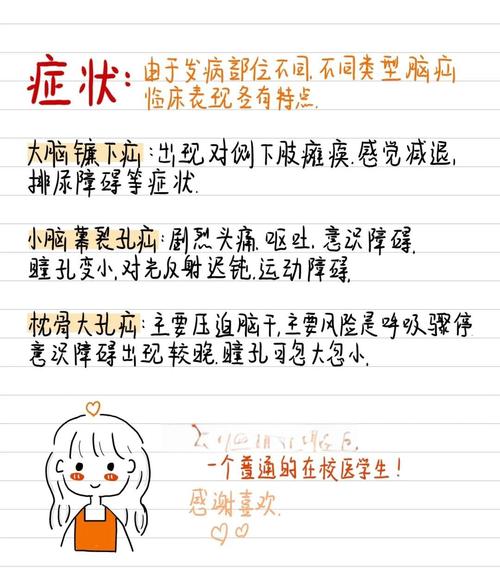 症状:由于发病部位不同.不同类型脑疝
临床表现各有特点.
大脑镰下疝:出现对侧下肢瘫痪.感觉减退,
排尿障碍等症状.
小脑幕裂孔疝:剧烈头痛.呕吐.意识障碍.
瞳孔变小,对光反射迟钝.运动障碍.
枕骨大孔疝:主要压迫脑干,主要风险是呼吸骤停
意识障碍出现较晚.瞳孔可忽大忽小.
一个普通的在校医学生!
感谢喜欢.